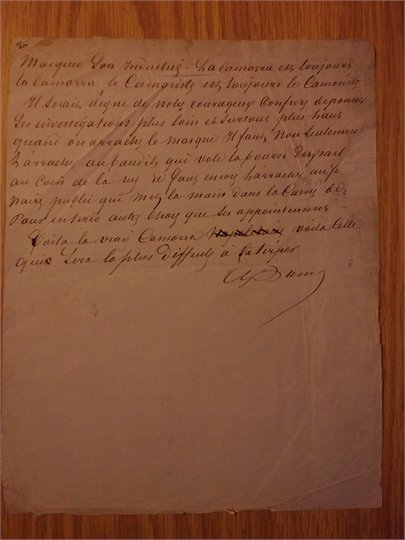 2
Masques Son Industrie - La camorra est toujours
la camorra, le Camoriste est toujours le Camoriste
Il serait digne de notre courageux Confrere de pousser
Ses investigations plus loin et surtout plus haut
quand on arrache le masque Il faut Non Seulement
L'arracher au bandit qui vole la
au Coin de la rue il faut encore l'arracher au fonc
naire publié qui met la main dans la Caisse des
Pauvres et n'en autre chose que Ses appointemens
Voila la vraie Camorra Napolitaine voila Celle
que Sera la plus Difficile à Extirper
Al Dumas